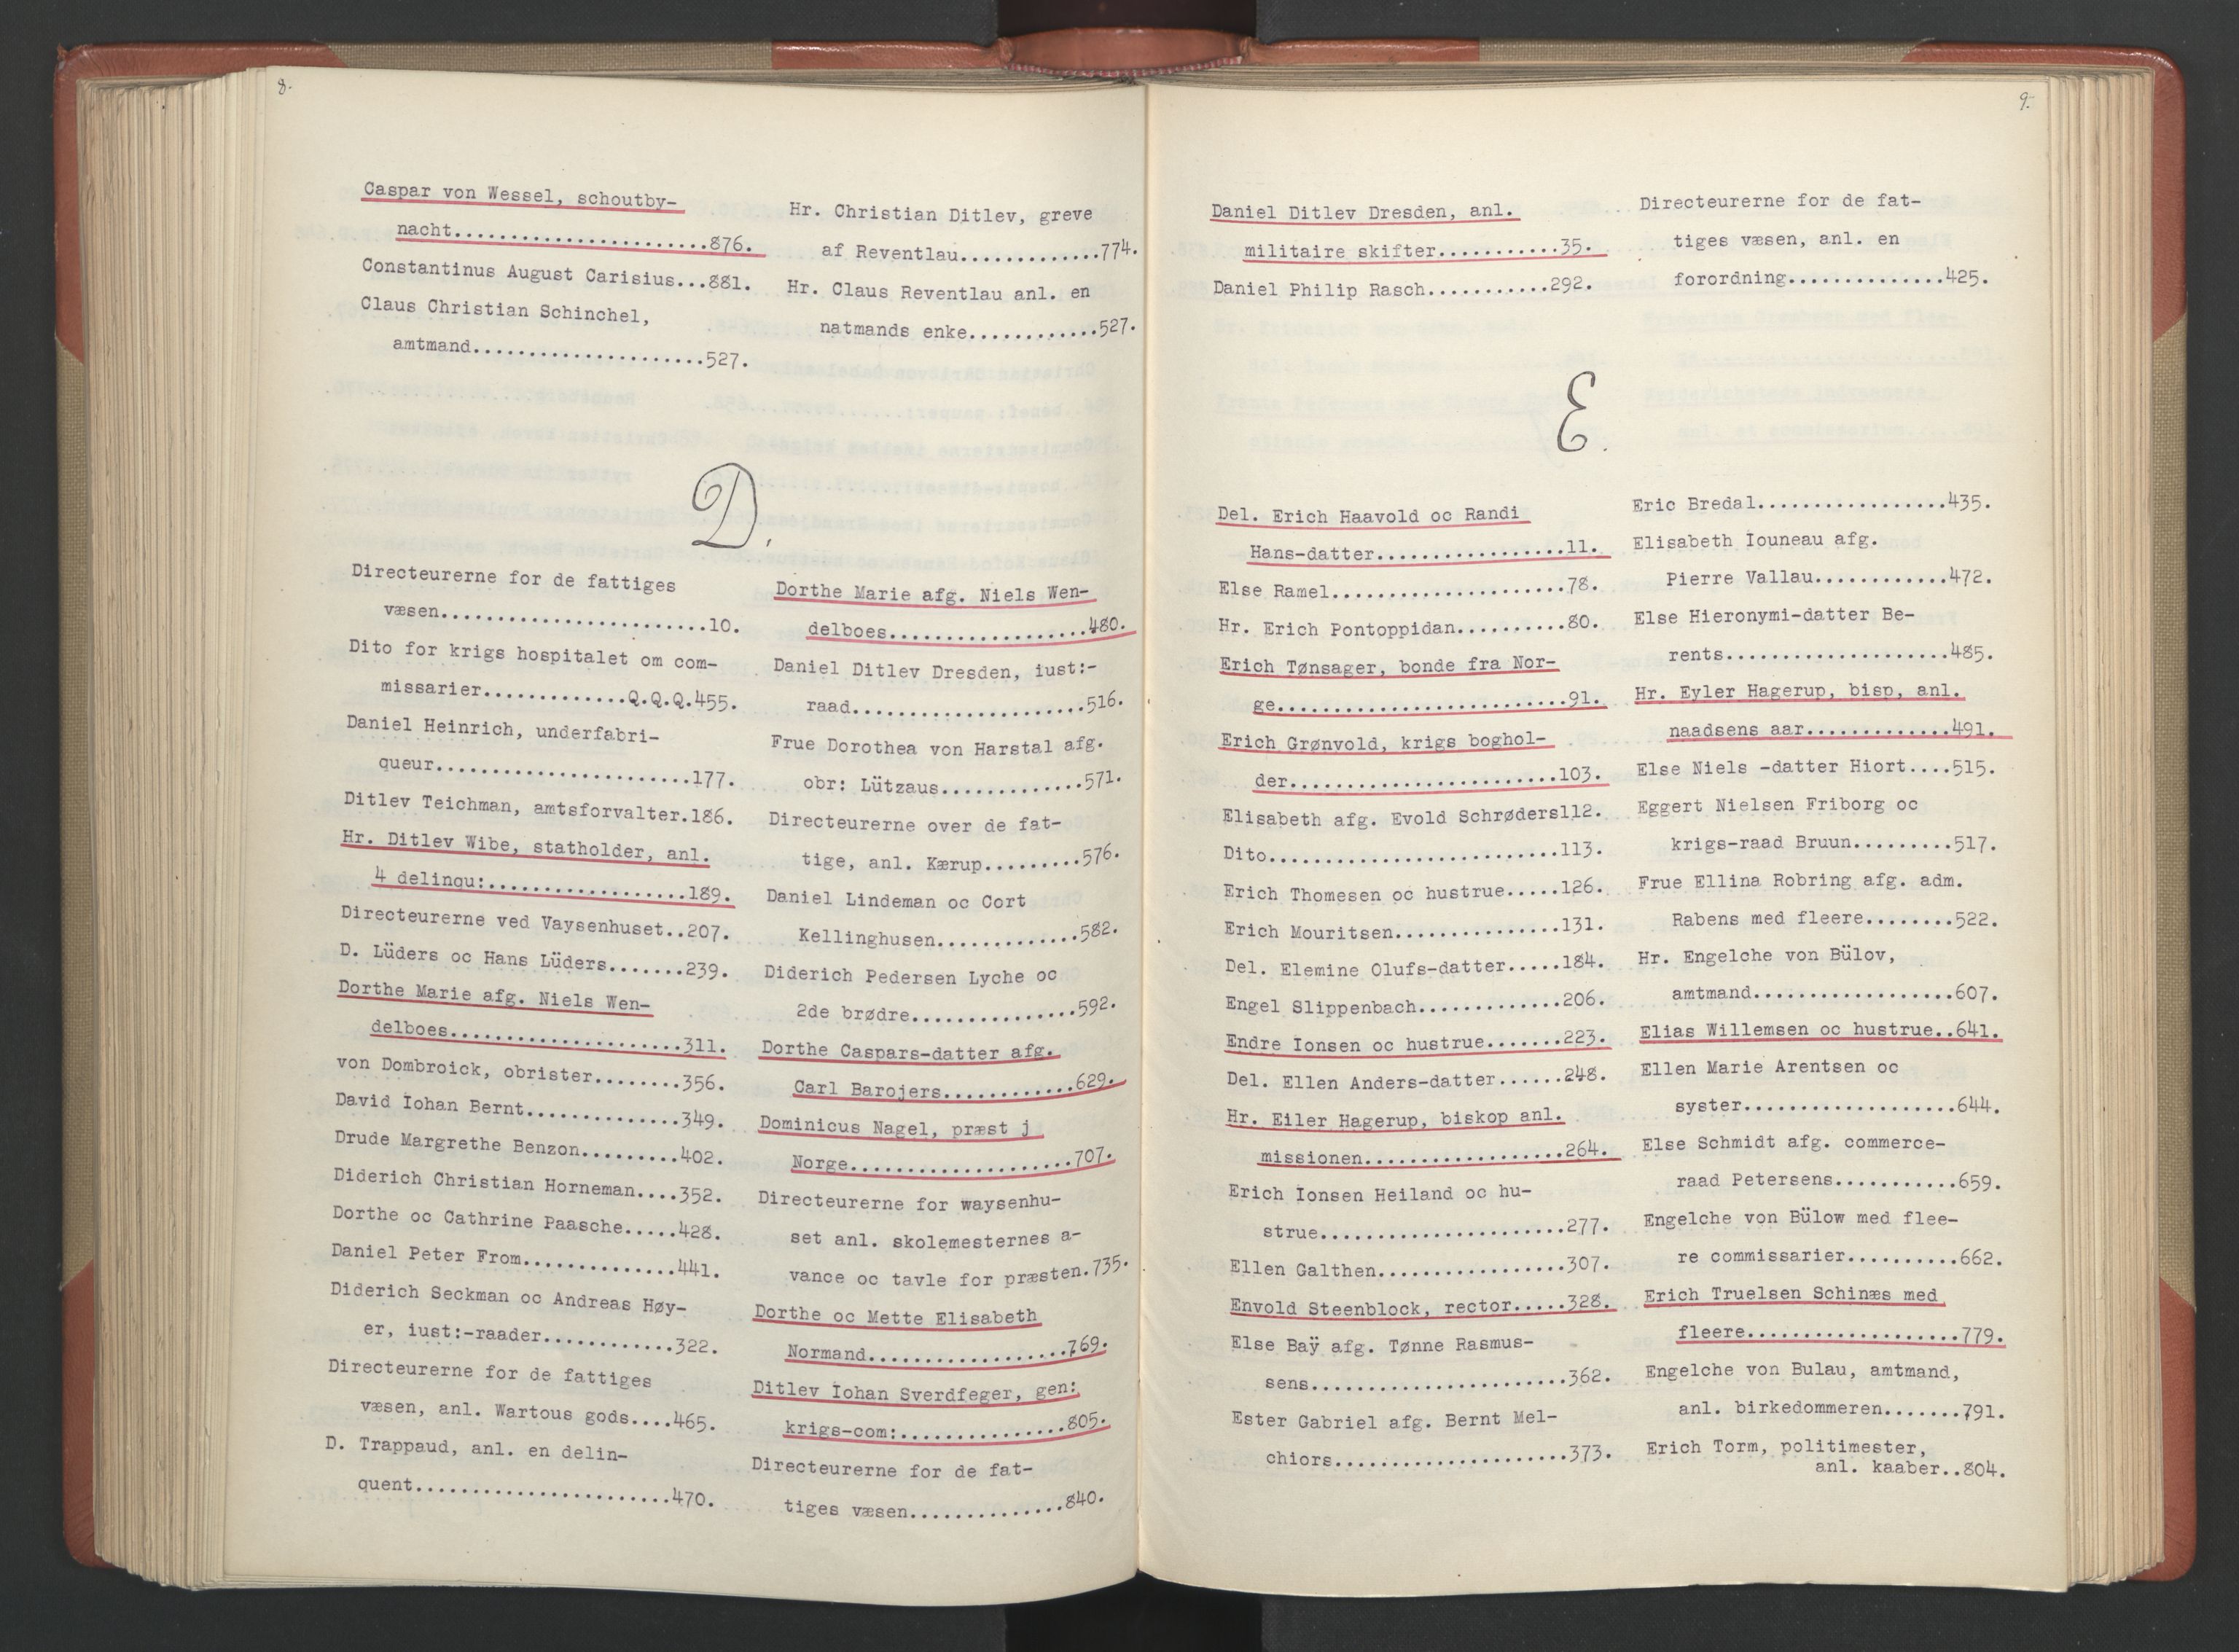 8.
Caspar von Wessel, schoutby-
nacht.......................876.
Constantinus August Carisius...881.
Claus Christian Schinchel,
amtmand.....................527.
Hr. Christian Ditlev, greve
af Reventlau.............774.
Hr. Claus Reventlau anl. en
natmands enke............527.
D.
Directeurerne for de fattiges
væsen........................10.
Dito for krigs hospitalet om com-
missarier.............Q.Q.Q.455.
Daniel Heinrich, underfabri-
queur.......................177.
Ditlev Teichman, amtsforvalter.186.
Hr. Ditlev Wibe, statholder, anl.
4 delinqu:..................189.
Directeurerne ved Vaysenhuset..207.
D. Lüders oc Hans Lüders.......239.
Dorthe Marie afg. Niels Wen-
delboes.....................311.
von Dombroick, obrister........356.
David Iohan Bernt..............349.
Drude Margrethe Benzon.........402.
Diderich Christian Horneman....352.
Dorthe oc Cathrine Paasche.....428.
Daniel Peter From..............441.
Diderich Seckman oc Andreas Høy-
er, iust:-raader............322.
Directeurerne for de fattiges
væsen, anl. Wartous gods....465.
D. Trappaud, anl. en delin-
quent.......................470.
Dorthe Marie afg. Niels Wen-
delboes..................480.
Daniel Ditlev Dresden, iust:-
raad.....................516.
Frue Dorothea von Harstal afg.
obr: Lützaus.............571.
Directeurerne over de fat-
tige, anl. Kærup.........576.
Daniel Lindeman oc Cort
Kellinghusen.............582.
Diderich Pedersen Lyche oc
2de brødre...............592.
Dorthe Caspars-datter afg.
Carl Barojers............629.
Dominicus Nagel, præst j
Norge....................707.
Directeurerne for waysenhu-
set anl. skolemesternes a-
vance oc tavle for præsten.735.
Dorthe oc Mette Elisabeth
Normand..................769.
Ditlev Iohan Sverdfeger, gen:
krigs-com:...............805.
Directeurerne for de fat-
tiges væsen..............840.
9.
Daniel Ditlev Dresden, anl.
militaire skifter...........35.
Daniel Philip Rasch...........292.
Directeurerne for de fat-
tiges væsen, anl. en
forordning..............425.
E.
Del. Erich Haavold oc Randi
Hans-datter.................11.
Else Ramel.....................78.
Hr. Erich Pontoppidan..........80.
Erich Tønsager, bonde fra Nor-
ge..........................91.
Erich Grønvold, krigs boghol-
der........................103.
Elisabeth afg. Evold Schrøders112.
Dito..........................113.
Erich Thomesen oc hustrue.....126.
Erich Mouritsen...............131.
Del. Elemine Olufs-datter.....184.
Engel Slippenbach.............206.
Endre Ionsen oc hustrue.......223.
Del. Ellen Anders-datter......248.
Hr. Eiler Hagerup, biskop anl.
missionen..................264.
Erich Ionsen Heiland oc hu-
strue......................277.
Ellen Galthen.................307.
Envold Steenblock, rector.....328.
Else Baÿ afg. Tønne Rasmus-
sens.......................362.
Ester Gabriel afg. Bernt Mel-
chiors.....................373.
Eric Bredal.................435.
Elisabeth Iouneau afg.
Pierre Vallau............472.
Else Hieronymi-datter Be-
rents....................485.
Hr. Eyler Hagerup, bisp, anl.
naadsens aar.............491.
Else Niels -datter Hiort....515.
Eggert Nielsen Friborg oc
krigs-raad Bruun.........517.
Frue Ellina Robring afg. adm.
Rabens med fleere........522.
Hr. Engelche von Bülov,
amtmand..................607.
Elias Willemsen oc hustrue..641.
Ellen Marie Arentsen oc
syster...................644.
Else Schmidt afg. commerce-
raad Petersens...........659.
Engelche von Bülow med flee-
re commissarier..........662.
Erich Truelsen Schinæs med
fleere...................779.
Engelche von Bulau, amtmand,
anl. birkedommeren.......791.
Erich Torm, politimester,
anl. kaaber..804.